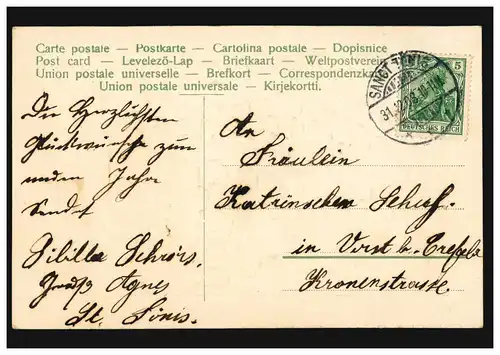 Carte postale — Postkarte — Cartolina postale — Dopisnice
Post card — Levelező-Lap — Briefkaart — Weltpostverein
Union postale universelle — Brefkort — Correspondenzkarte
Union postale universale — Kirjekortti.
Die Herzlichsten
Glückwünsche zum
neuen Jahre
Sendet
Sibilla Schrörs.
Gruß Agnes
St. Tönis.
SANCT TÖNIS
31.12.
5
DEUTSCHES REICH
An
Fräulein
Katrinchen
in Vorst b. Crefeld
Kronenstrasse.